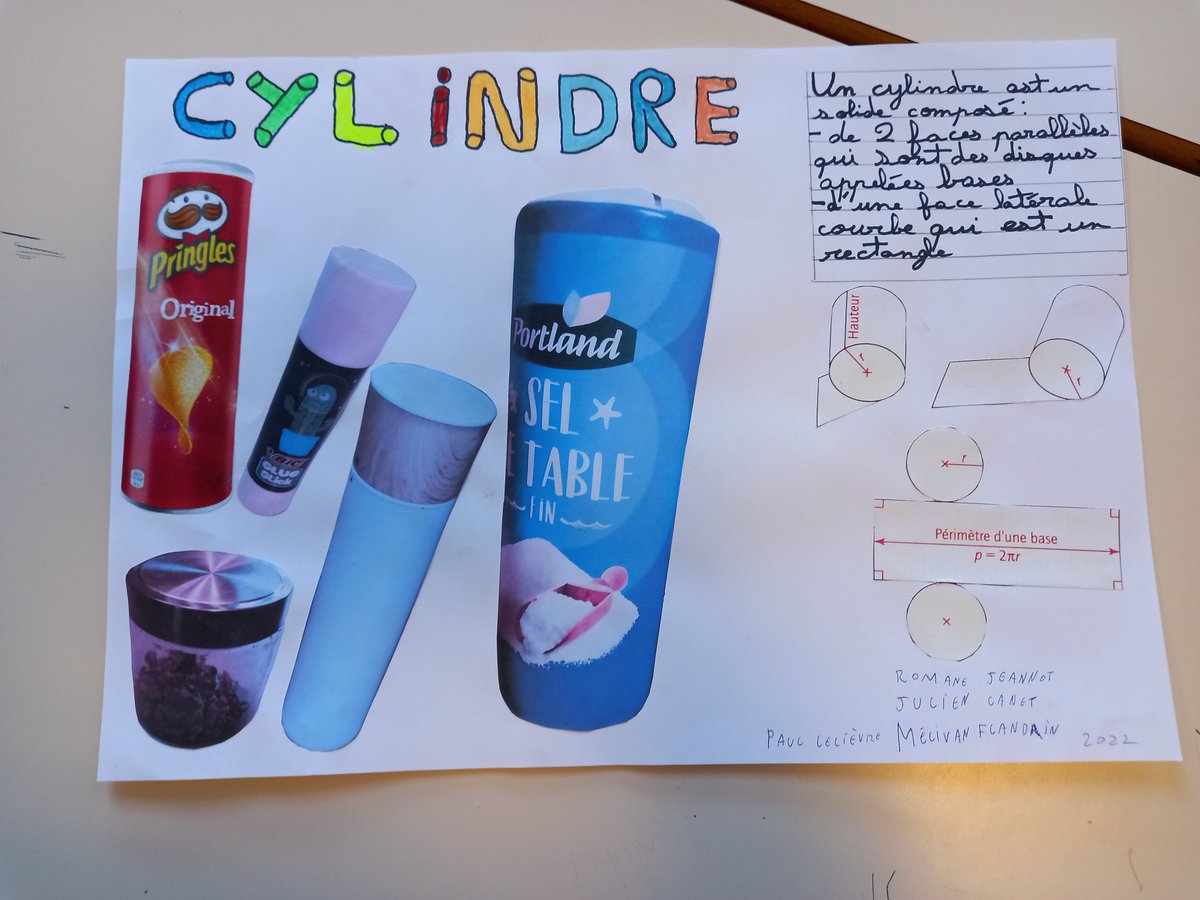 CYLINDRE
Un cylindre est un
solide composé :
- de 2 faces parallèles
qui sont des disques
appelées bases
- d'une face latérale
courbe qui est un
rectangle
Pringles
Original
GLUE
Stick
Portland
SEL
TABLE
FIN
Hauteur
r
r
r
Périmètre d'une base
p = 2πr
ROMANE JEANNOT
JULIEN CANET
PAUL LELIÈVRE MÉLIVAN FLANDRIN 2022